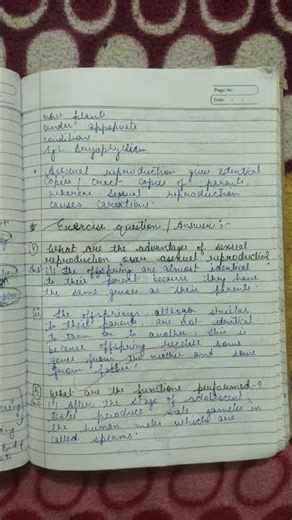 Page No:
Date: / /
new plants
under appopriate
conditions
Eg:- Bryophyllum
• Asexual reproduction gives identical
copies / exact copies of parents
whereas sexual reproduction
causes variations.
Exercise question / Answer:-
What are the advantages of sexual
reproduction over asexual reproduction
(i) The offspring are almost identical
to their parent because they have
the same genes as their parents
The offsprings, although similar
to their parents are not identical
to them or to another. this is
because offspring receive some
genes from the mother and some
from father.
What are the functions performed -
(i) After the stage of adolescent
testes produce male gametes in
the human males which are
called sperms.